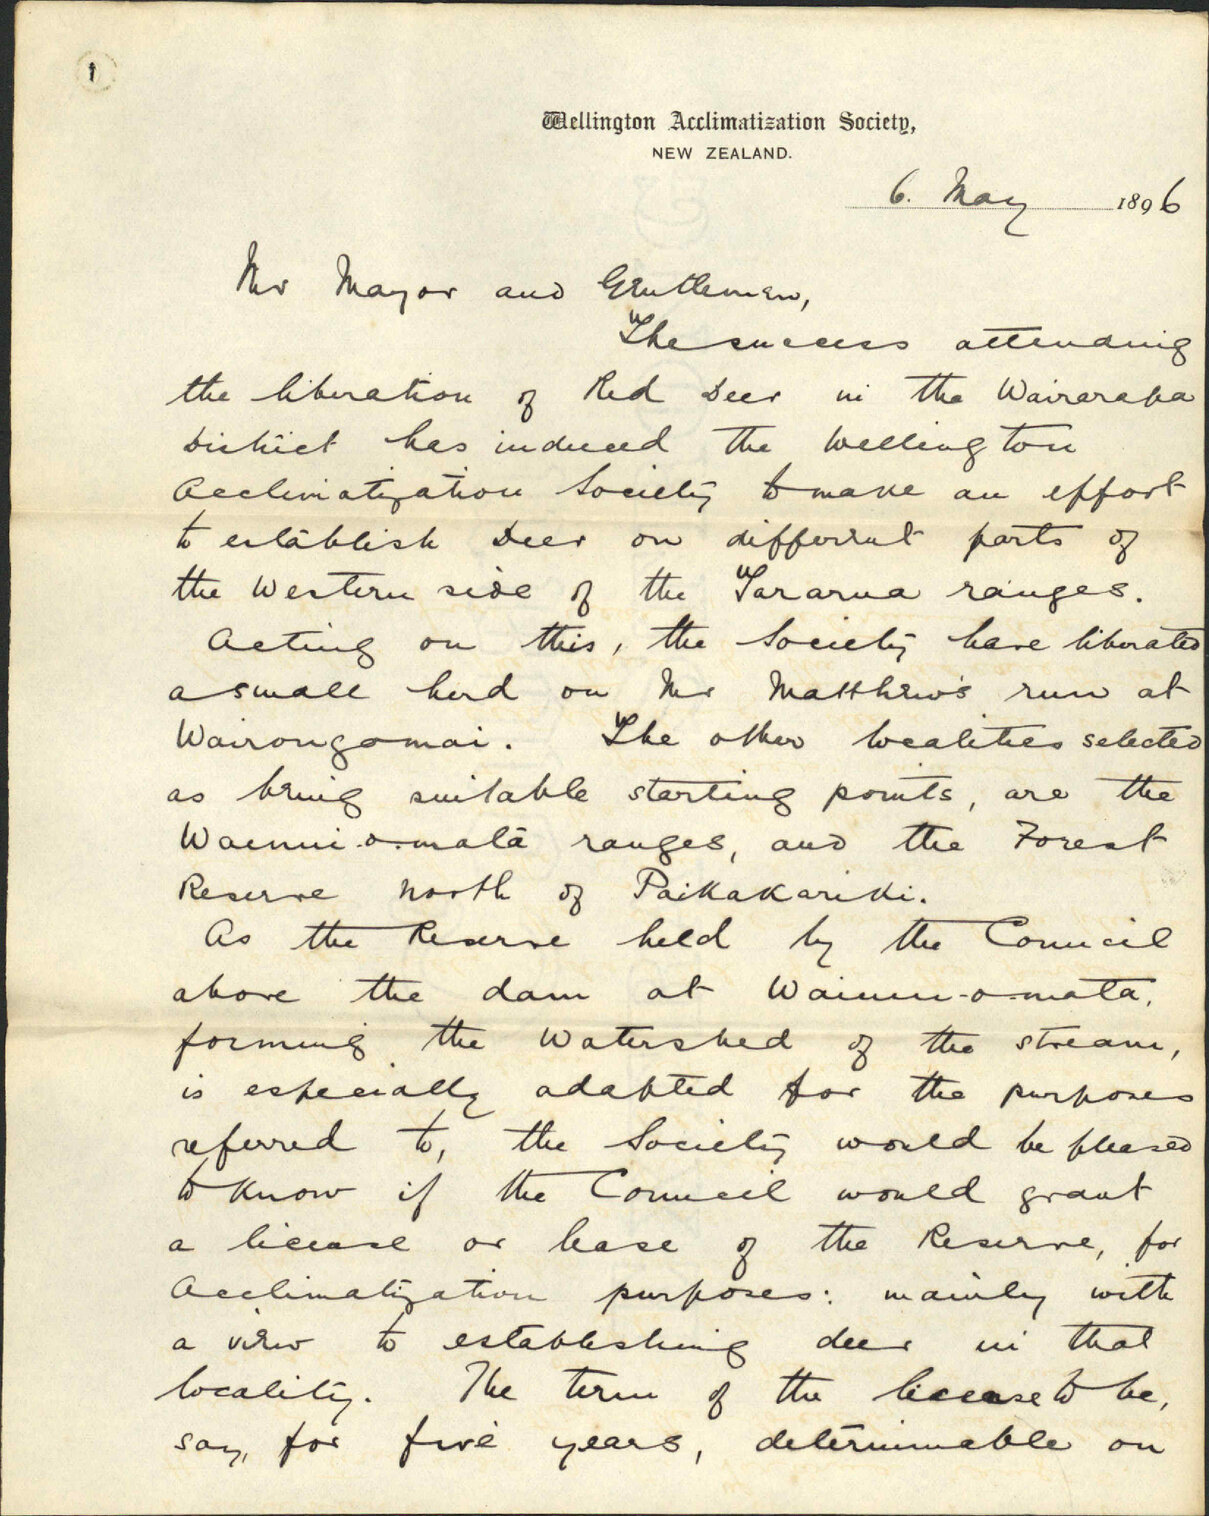 1
Wellington Acclimatization Society,
NEW ZEALAND.
6. May 1896
Mr Mayor and Gentlemen,
The success attending
the liberation of Red Deer in the Wairarapa
District has induced the Wellington
Acclimatization Society to make an effort
to establish Deer on different parts of
the Western side of the Tararua ranges.
Acting on this, the Society have liberated
a small herd on Mr Matthew's run at
Wairongomai. The other localities selected
as being suitable starting points, are the
Wainui-o-mata ranges, and the Forest
Reserve north of Paikakariki.
As the Reserve held by the Council
above the dam at Wainui-o-mata,
forming the Watershed of the stream,
is especially adapted for the purposes
referred to, the Society would be pleased
to know if the Council would grant
a license or lease of the Reserve, for
Acclimatization purposes: mainly with
a view to establishing deer in that
locality. The term of the license to be,
say, for five years, determinable on